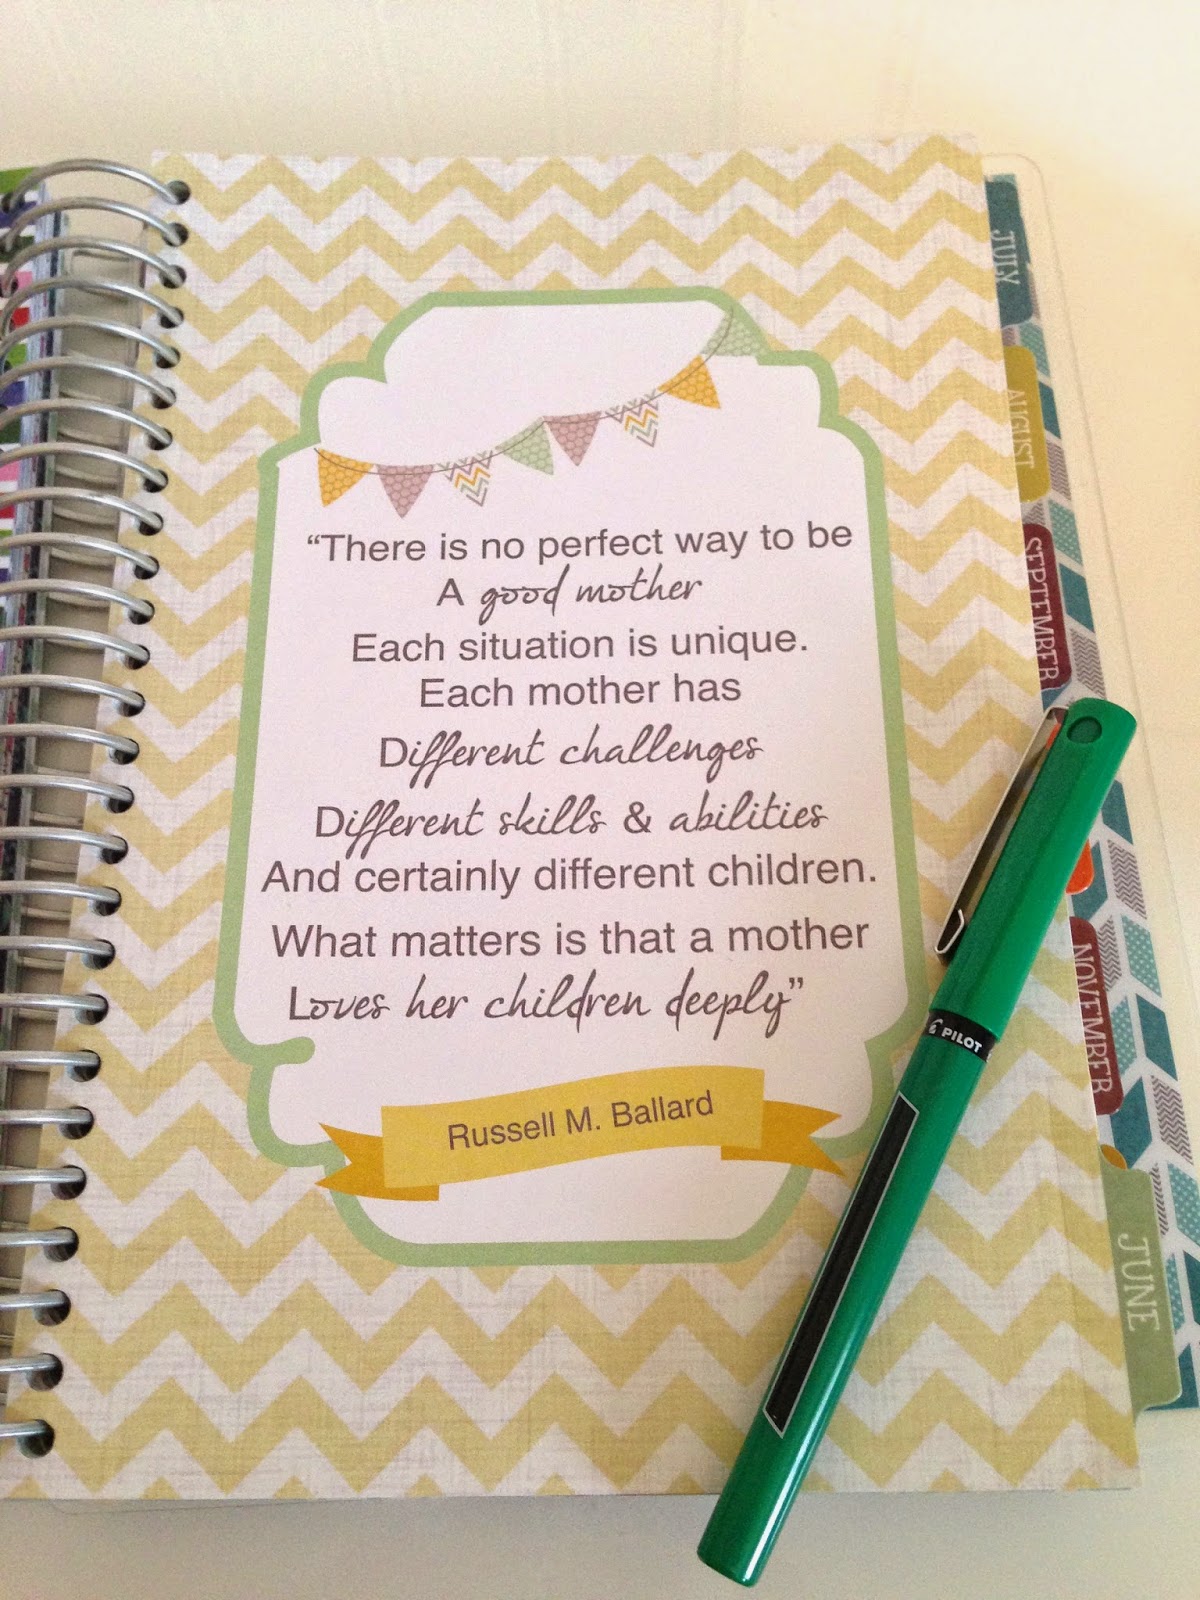 “There is no perfect way to be
A good mother
Each situation is unique.
Each mother has
Different challenges
Different skills & abilities
And certainly different children.
What matters is that a mother
Loves her children deeply”
Russell M. Ballard
JULY
AUGUST
SEPTEMBER
NOVEMBER
JUNE
PILOT